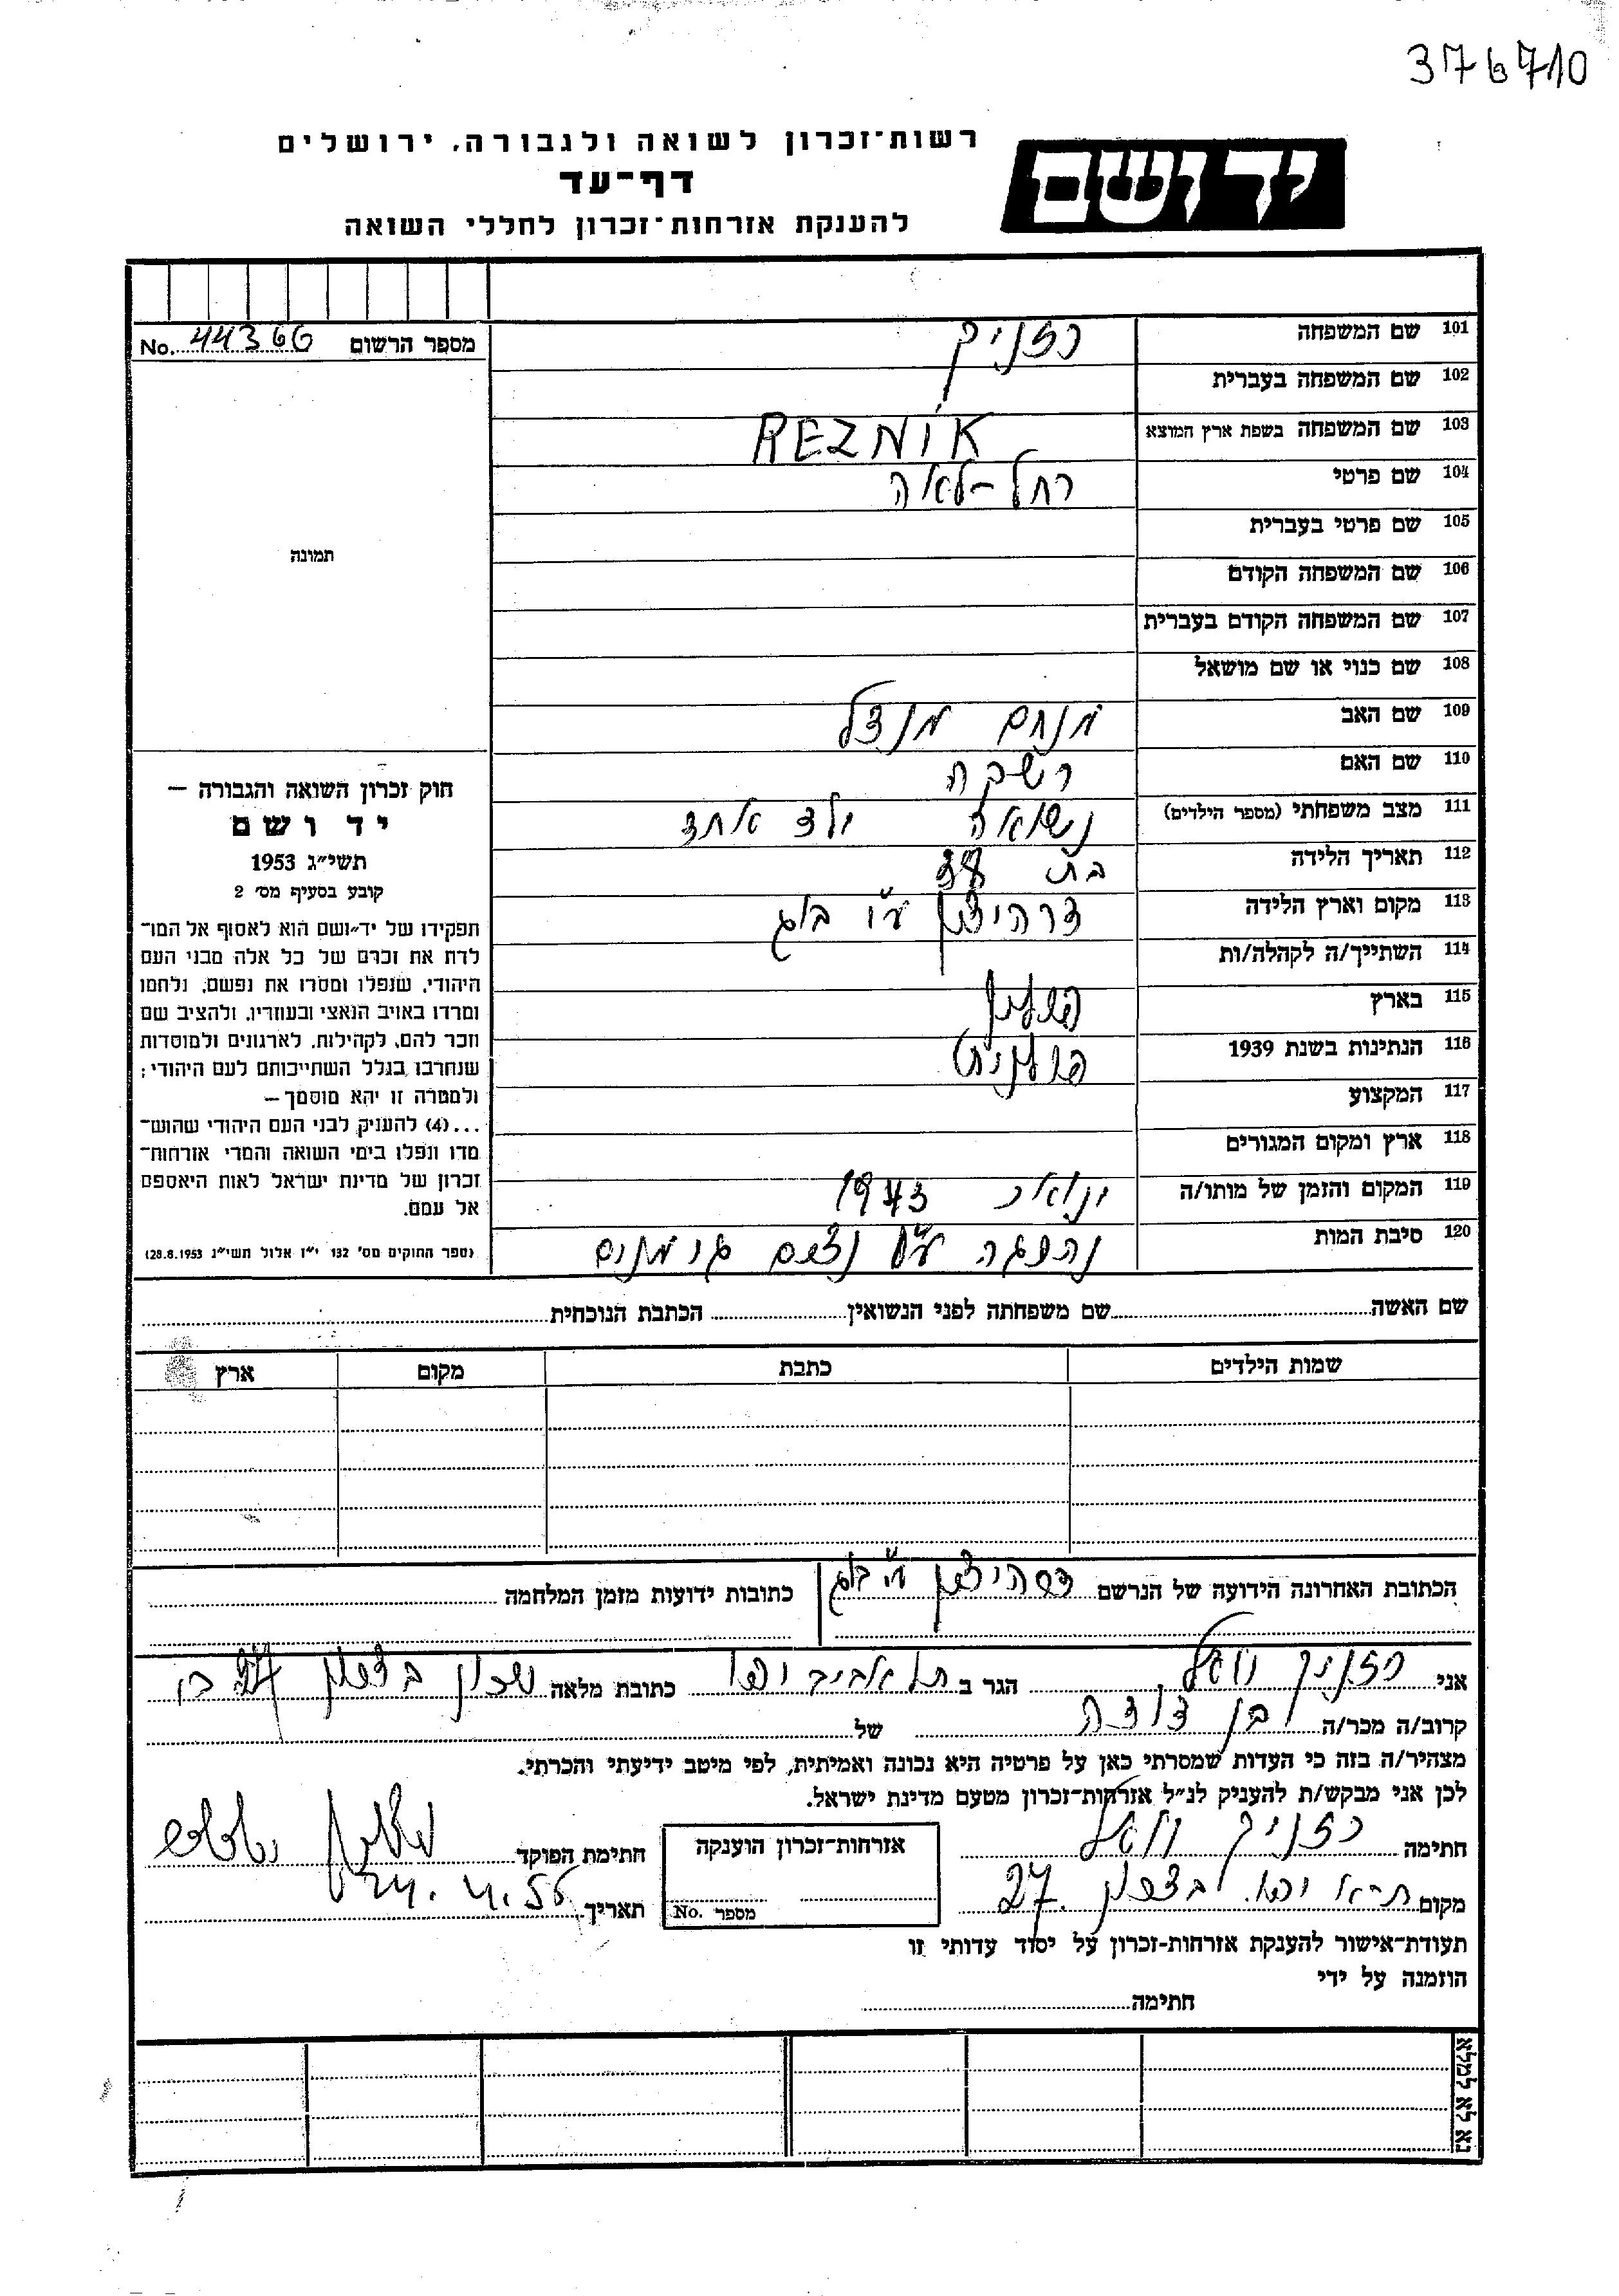 376710
ידושם
רשות־זכרון לשואה ולגבורה, ירושלים
דף־עד
להענקת אזרחות־זכרון לחללי השואה
מספר הרשום No. 44366
תמונה
חוק זכרון השואה והגבורה —
יד ושם
תשי״ג 1953
קובע בסעיף מס׳ 2
תפקידו של יד־ושם הוא לאסוף אל המו־
לדת את זכרם של כל אלה מבני העם
היהודי, שנפלו ומסרו את נפשם, נלחמו
ומרדו באויב הנאצי ובעוזריו, ולהציב שם
וזכר להם, לקהילות, לארגונים ולמוסדות
שנחרבו בגלל השתייכותם לעם היהודי;
ולמטרה זו יהא מוסמך —
...(4) להעניק לבני העם היהודי שהוש־
מדו ונפלו בימי השואה והמרי אזרחות־
זכרון של מדינת ישראל לאות היאספם
אל עמם.
(ספר החוקים מס׳ 132 י״ז אלול תשי״ג 28.8.1953)
101 שם המשפחה רזניק
102 שם המשפחה בעברית
103 שם המשפחה בשפת ארץ המוצא REZNIK
104 שם פרטי רחל-לאה
105 שם פרטי בעברית
106 שם המשפחה הקודם
107 שם המשפחה הקודם בעברית
108 שם כנוי או שם מושאל
109 שם האב מנחם מנדל
110 שם האם רבקה
111 מצב משפחתי (מספר הילדים) נשואה ילד אחד
112 תאריך הלידה בת
113 מקום וארץ הלידה דרהיצין ע״י
114 השתייך/ה לקהלה/ות
115 בארץ פולין
116 הנתינות בשנת 1939 פולנית
117 המקצוע
118 ארץ ומקום המגורים
119 המקום והזמן של מותו/ה ינואר 1943
120 סיבת המות נהרגה ע״י נאצים גרמנים
שם האשה שם משפחתה לפני הנשואין הכתבת הנוכחית
שמות הילדים כתבת מקום ארץ
הכתובת האחרונה הידועה של הנרשם דרהיצין ע״י
כתובות ידועות מזמן המלחמה
אני רזניק הגר ב תל אביב יפו כתובת מלאה שכון 27
קרוב/ה מכר/ה בן דודה של
מצהיר/ה בזה כי העדות שמסרתי כאן על פרטיה היא נכונה ואמיתית, לפי מיטב ידיעתי והכרתי.
לכן אני מבקש/ת להעניק לנ״ל אזרחות־זכרון מטעם מדינת ישראל.
חתימה רזניק
חתימת הפוקד
מקום ת״א יפו 27
תאריך 24.4.56
אזרחות־זכרון הוענקה
מספר No.
תעודת־אישור להענקת אזרחות-זכרון על יסוד עדותי זו
הוזמנה על ידי
חתימה
נא לא למלא